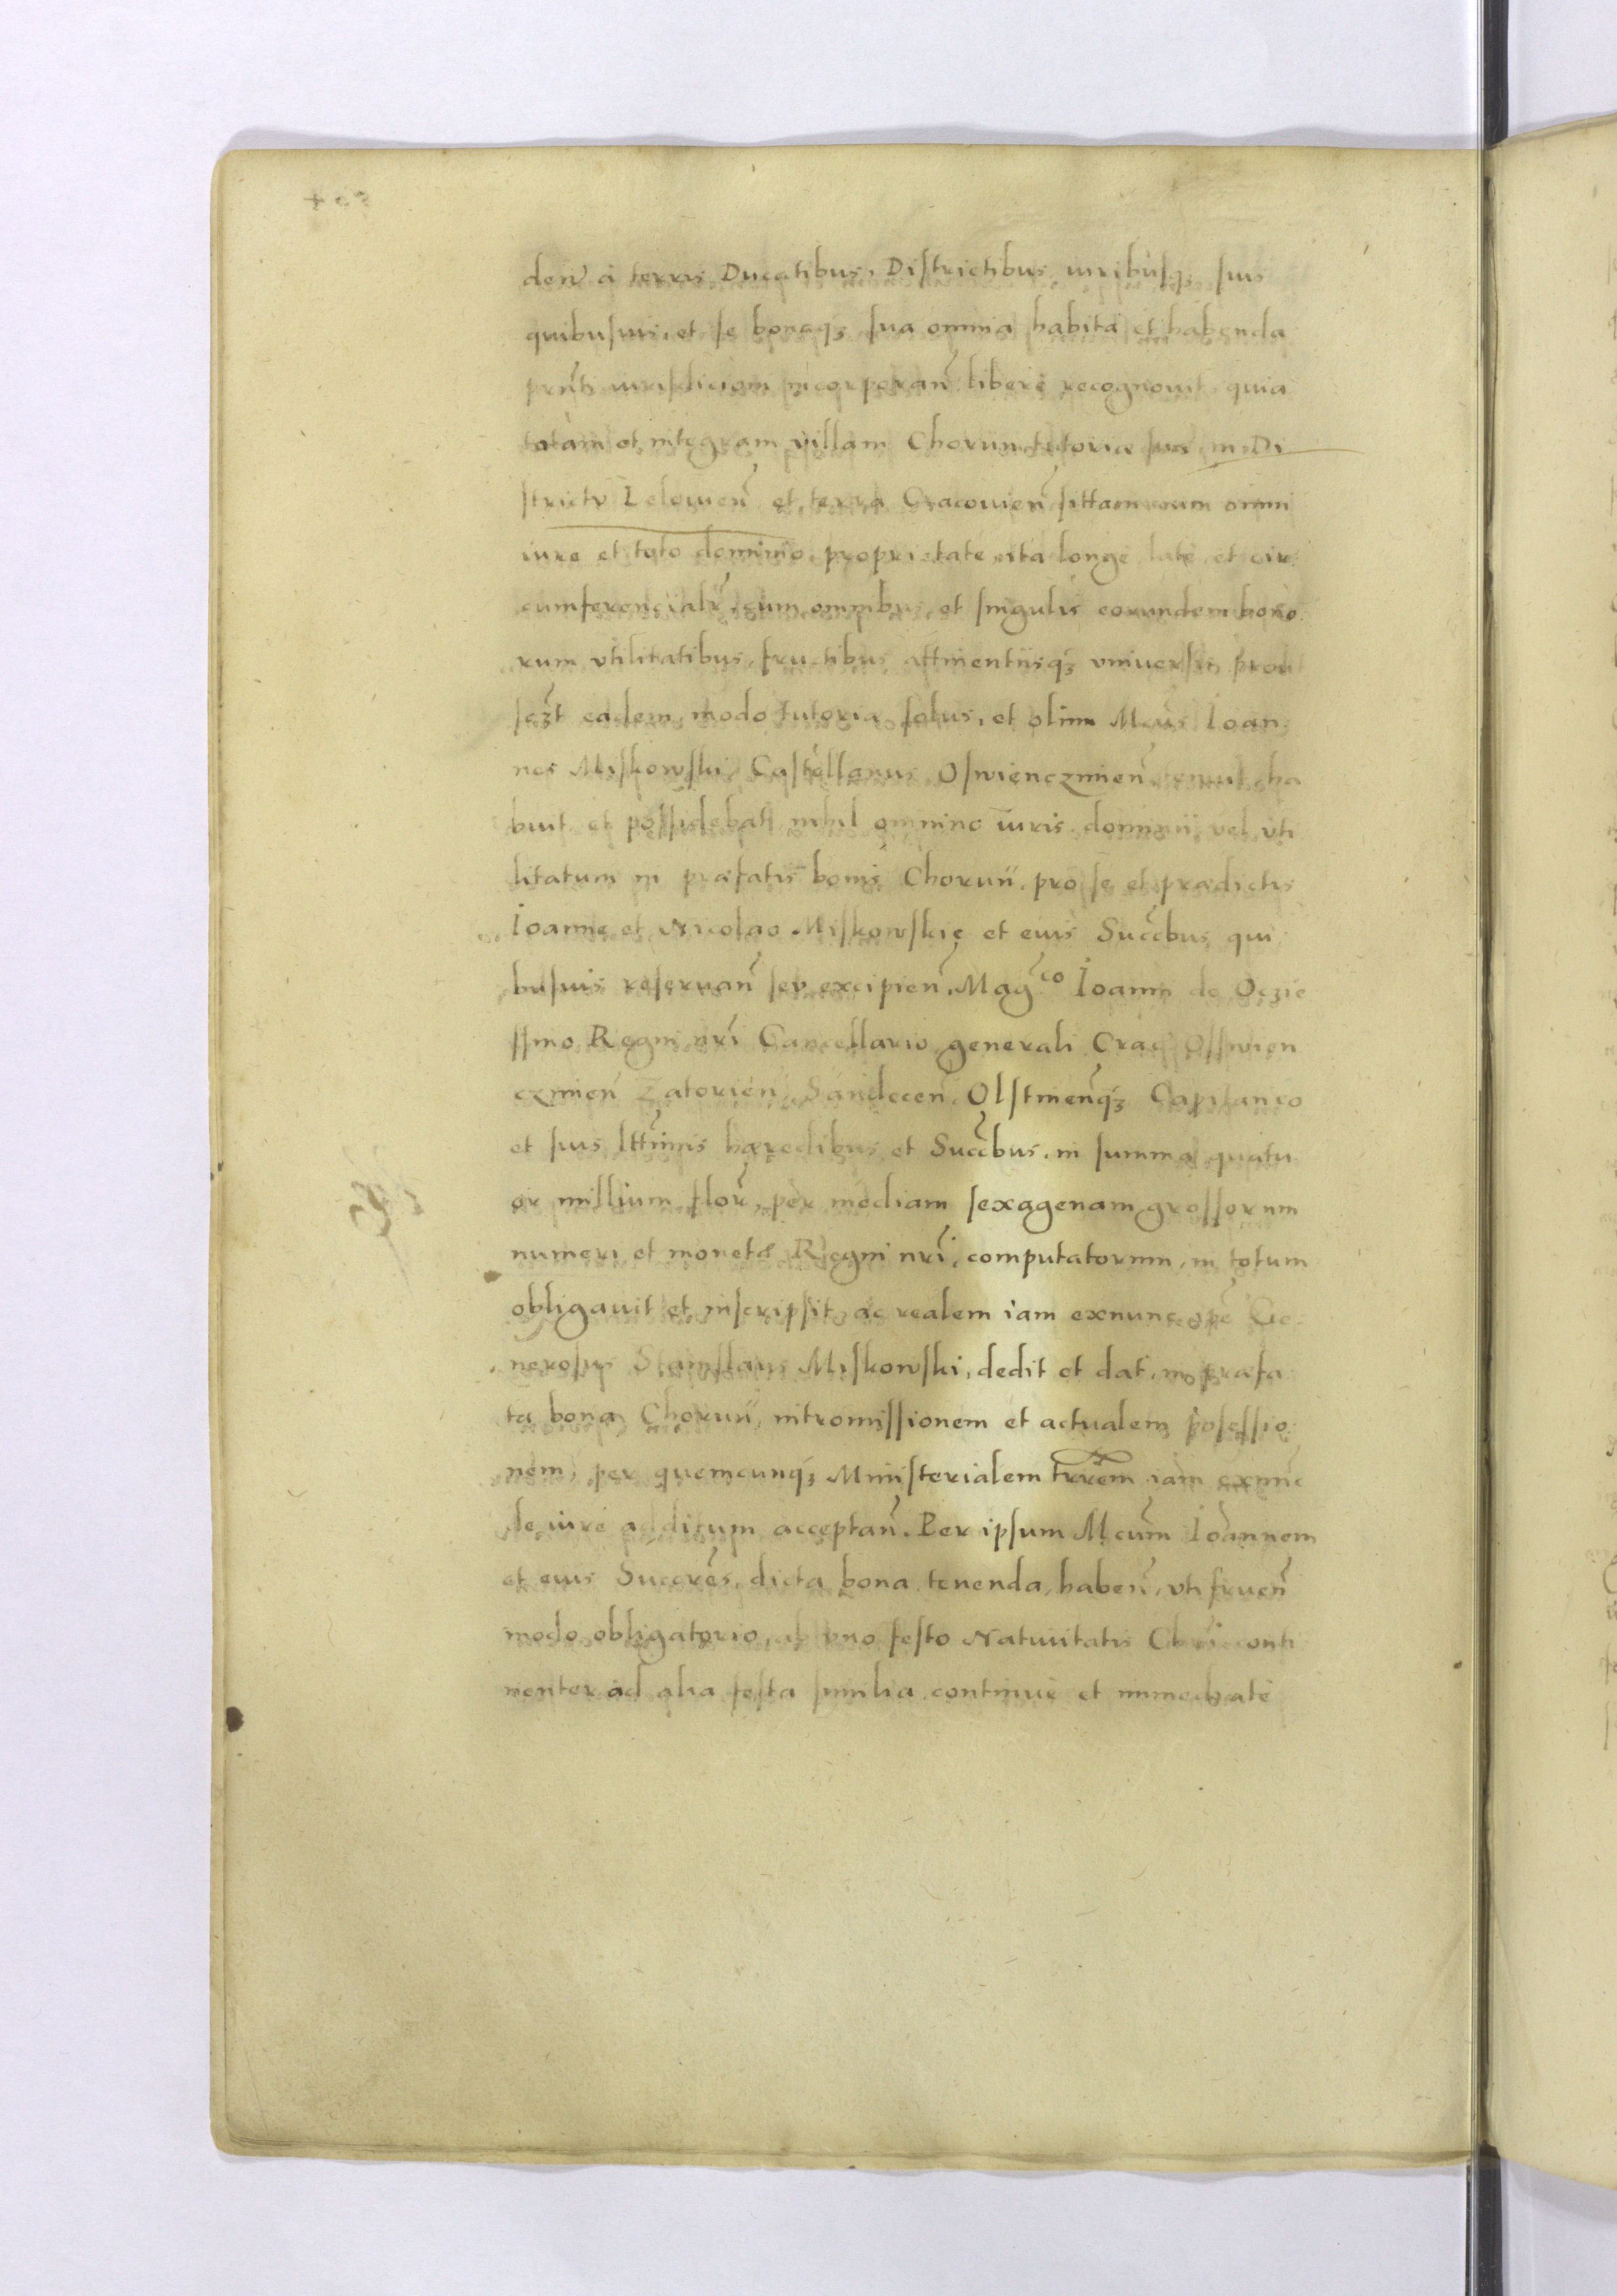 deñ á terris Ducatibus, Districtibus, iuribusqꝫ suis
quibusuis, et se bonaqꝫ sua omnia habita et habenda
pñti iurisdicioni incorporañ libere recognouit, quia
totam et integram villam Chorun tutoriæ suæ in Di
strictu Lelouieñ et terra Cracouieñ sittam cum omni
iure et toto dominio, proprietate, ita longe late, et cir
cumferencialr̃, cum omnibus, et singulis eorundem bono
rum vtilitatibus, fructibus attinentiisqꝫ vniuersis prout
sczt eadem modo tutoria solus, et olim Mcus Ioan
nes Miskowski Castellanus Oswienczimieñ tenuit ha
buit et possidebat, nihil omnino iuris, dominii vel vti
litatum in præfatis bonis Chorun, pro se et prædictis
Ioanne et Nicolao Miskowskie et eius Succ̃bus qui
busuis reseruañ seu excipieñ, Mag̃co Ioanni de Oczie
ssino Regni nr̃i Cancellario generali Crac̃ Osswien
czimieñ Zatorieñ, Sandeceñ, Olstineñqꝫ Capitaneo
et suis lttimis hæredibus et Succ̃bus, in summa quatu
or millium flor̃, per mediam sexagenam grossorum
numeri et monetæ Regni nr̃i, computatorum, in totum
obligauit et inscripsit, ac realem iam exnunc ipe Ge
nerosus Stanislaus Miskowski, dedit et dat, in præfa
ta bona Chorun, intromissionem et actualem posessio
nem, per quemcunqꝫ Ministerialem trr̃em iam exnunc
de iure additum acceptañ. Per ipsum Mcum Ioannem
et eius Succr̃es, dicta bona tenenda, habeñ, vti frueñ
modo obligatorio, ab vno festo Natiuitatis Chr̃i conti
nenter ad alia festa similia continue et immediate